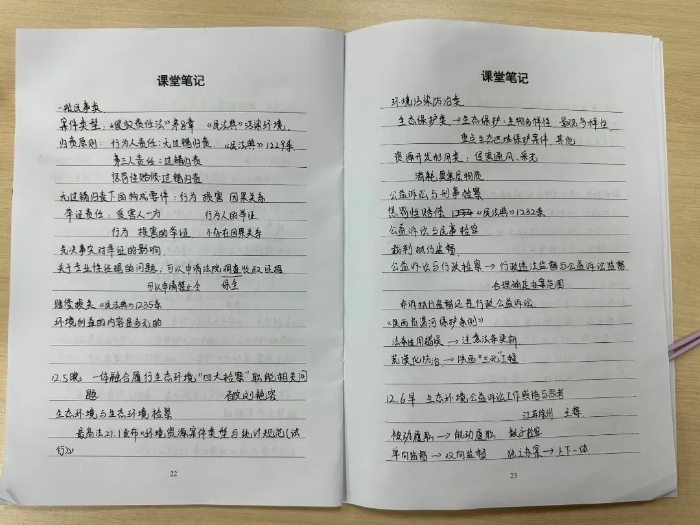 课堂笔记
一般民事类
案件类型：《侵权责任法》第8章 《民法典》污染环境、
归责原则：行为人责任：无过错归责 《民法典》1229条
第三人责任：过错归责
惩罚性赔偿：过错归责
无过错归责下的构成要件：行为 损害 因果关系
举证责任：受害人一方 行为人的举证
行为 损害的举证 不存在因果关系
先决事实对举证的影响
关于专业性证据的问题：可以申请法院调查收取证据
可以申请禁止令 保全
赔偿损失《民法典》1235条
环境利益的内容是多元的
12.5晚 一体融合履行生态环境"四大检察"职能相关问
题 刘艳
生态环境与生态环境检察
最高法21.1发布《环境资源案件类型与统计规范(试
行)》
22
课堂笔记
环境污染防治类
生态保护类→生态保护：生物多样性 景观多样性
重点生态区域保护案件 其他
资源开发利用类：侵害通风、采光
消耗臭氧层物质
公益诉讼与刑事检察
惩罚性赔偿 《民法典》1232条
公益诉讼与民事检察
裁判执行监督
公益诉讼与行政检察→行政违法监督与公益诉讼监督
合理确定办案范围
非诉执行监督还是行政公益诉讼
《陕西省渭河保护条例》
法条适用错误→注意法条更新
荒漠化防治→陕西"三北"工程
12.6早 生态环境公益诉讼工作感悟与思考
江苏徐州
被动履职→能动履职 数字检察
单向监督→双向监督 独立办案→上下一体
23